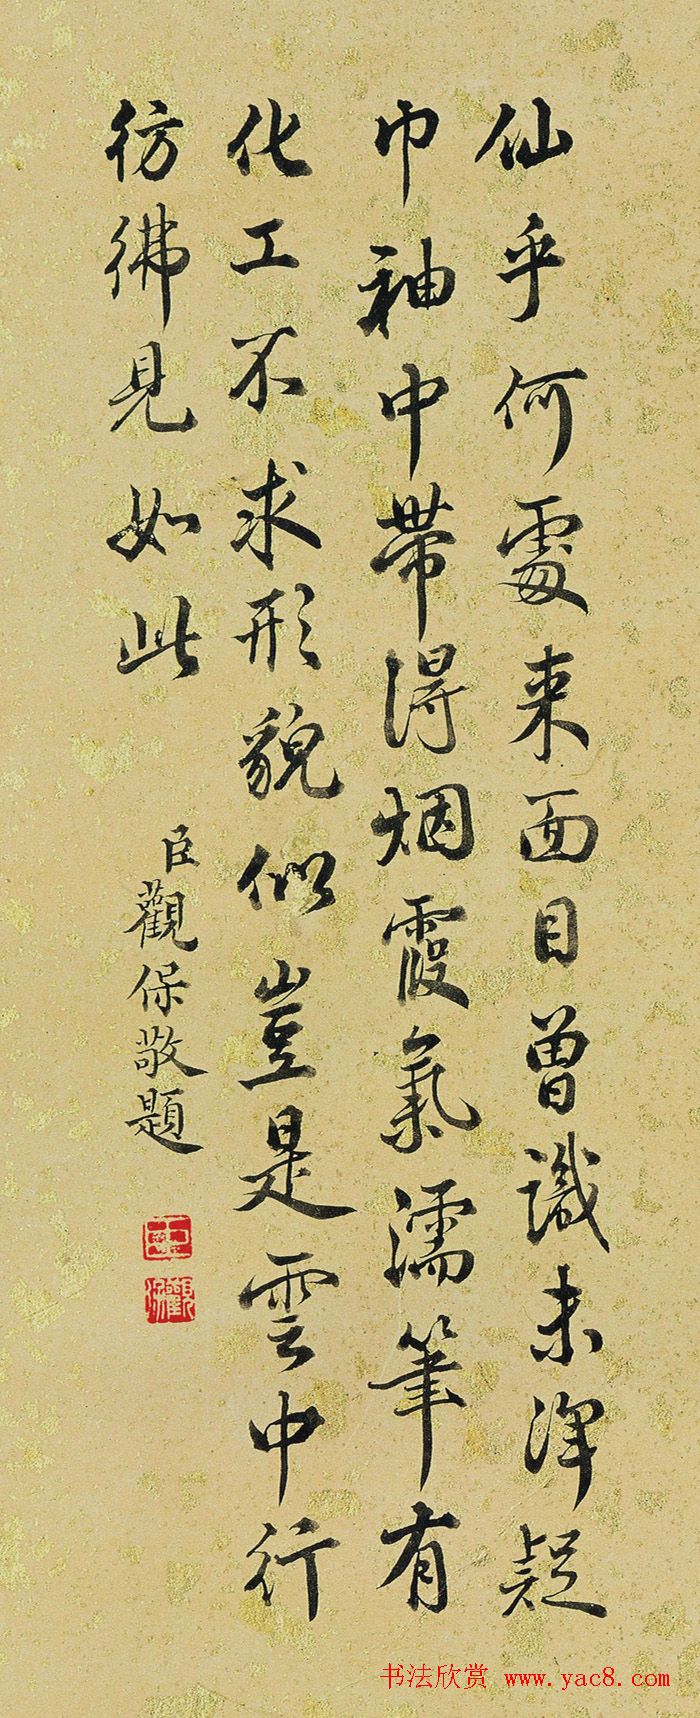 仙乎何處来面目曾識未渾疑
巾袖中帶得烟霞氣濡筆有
化工不求形貌似豈是雲中行
彷彿見如此
臣觀保敬題
臣
书法欣赏 www.yac8.com